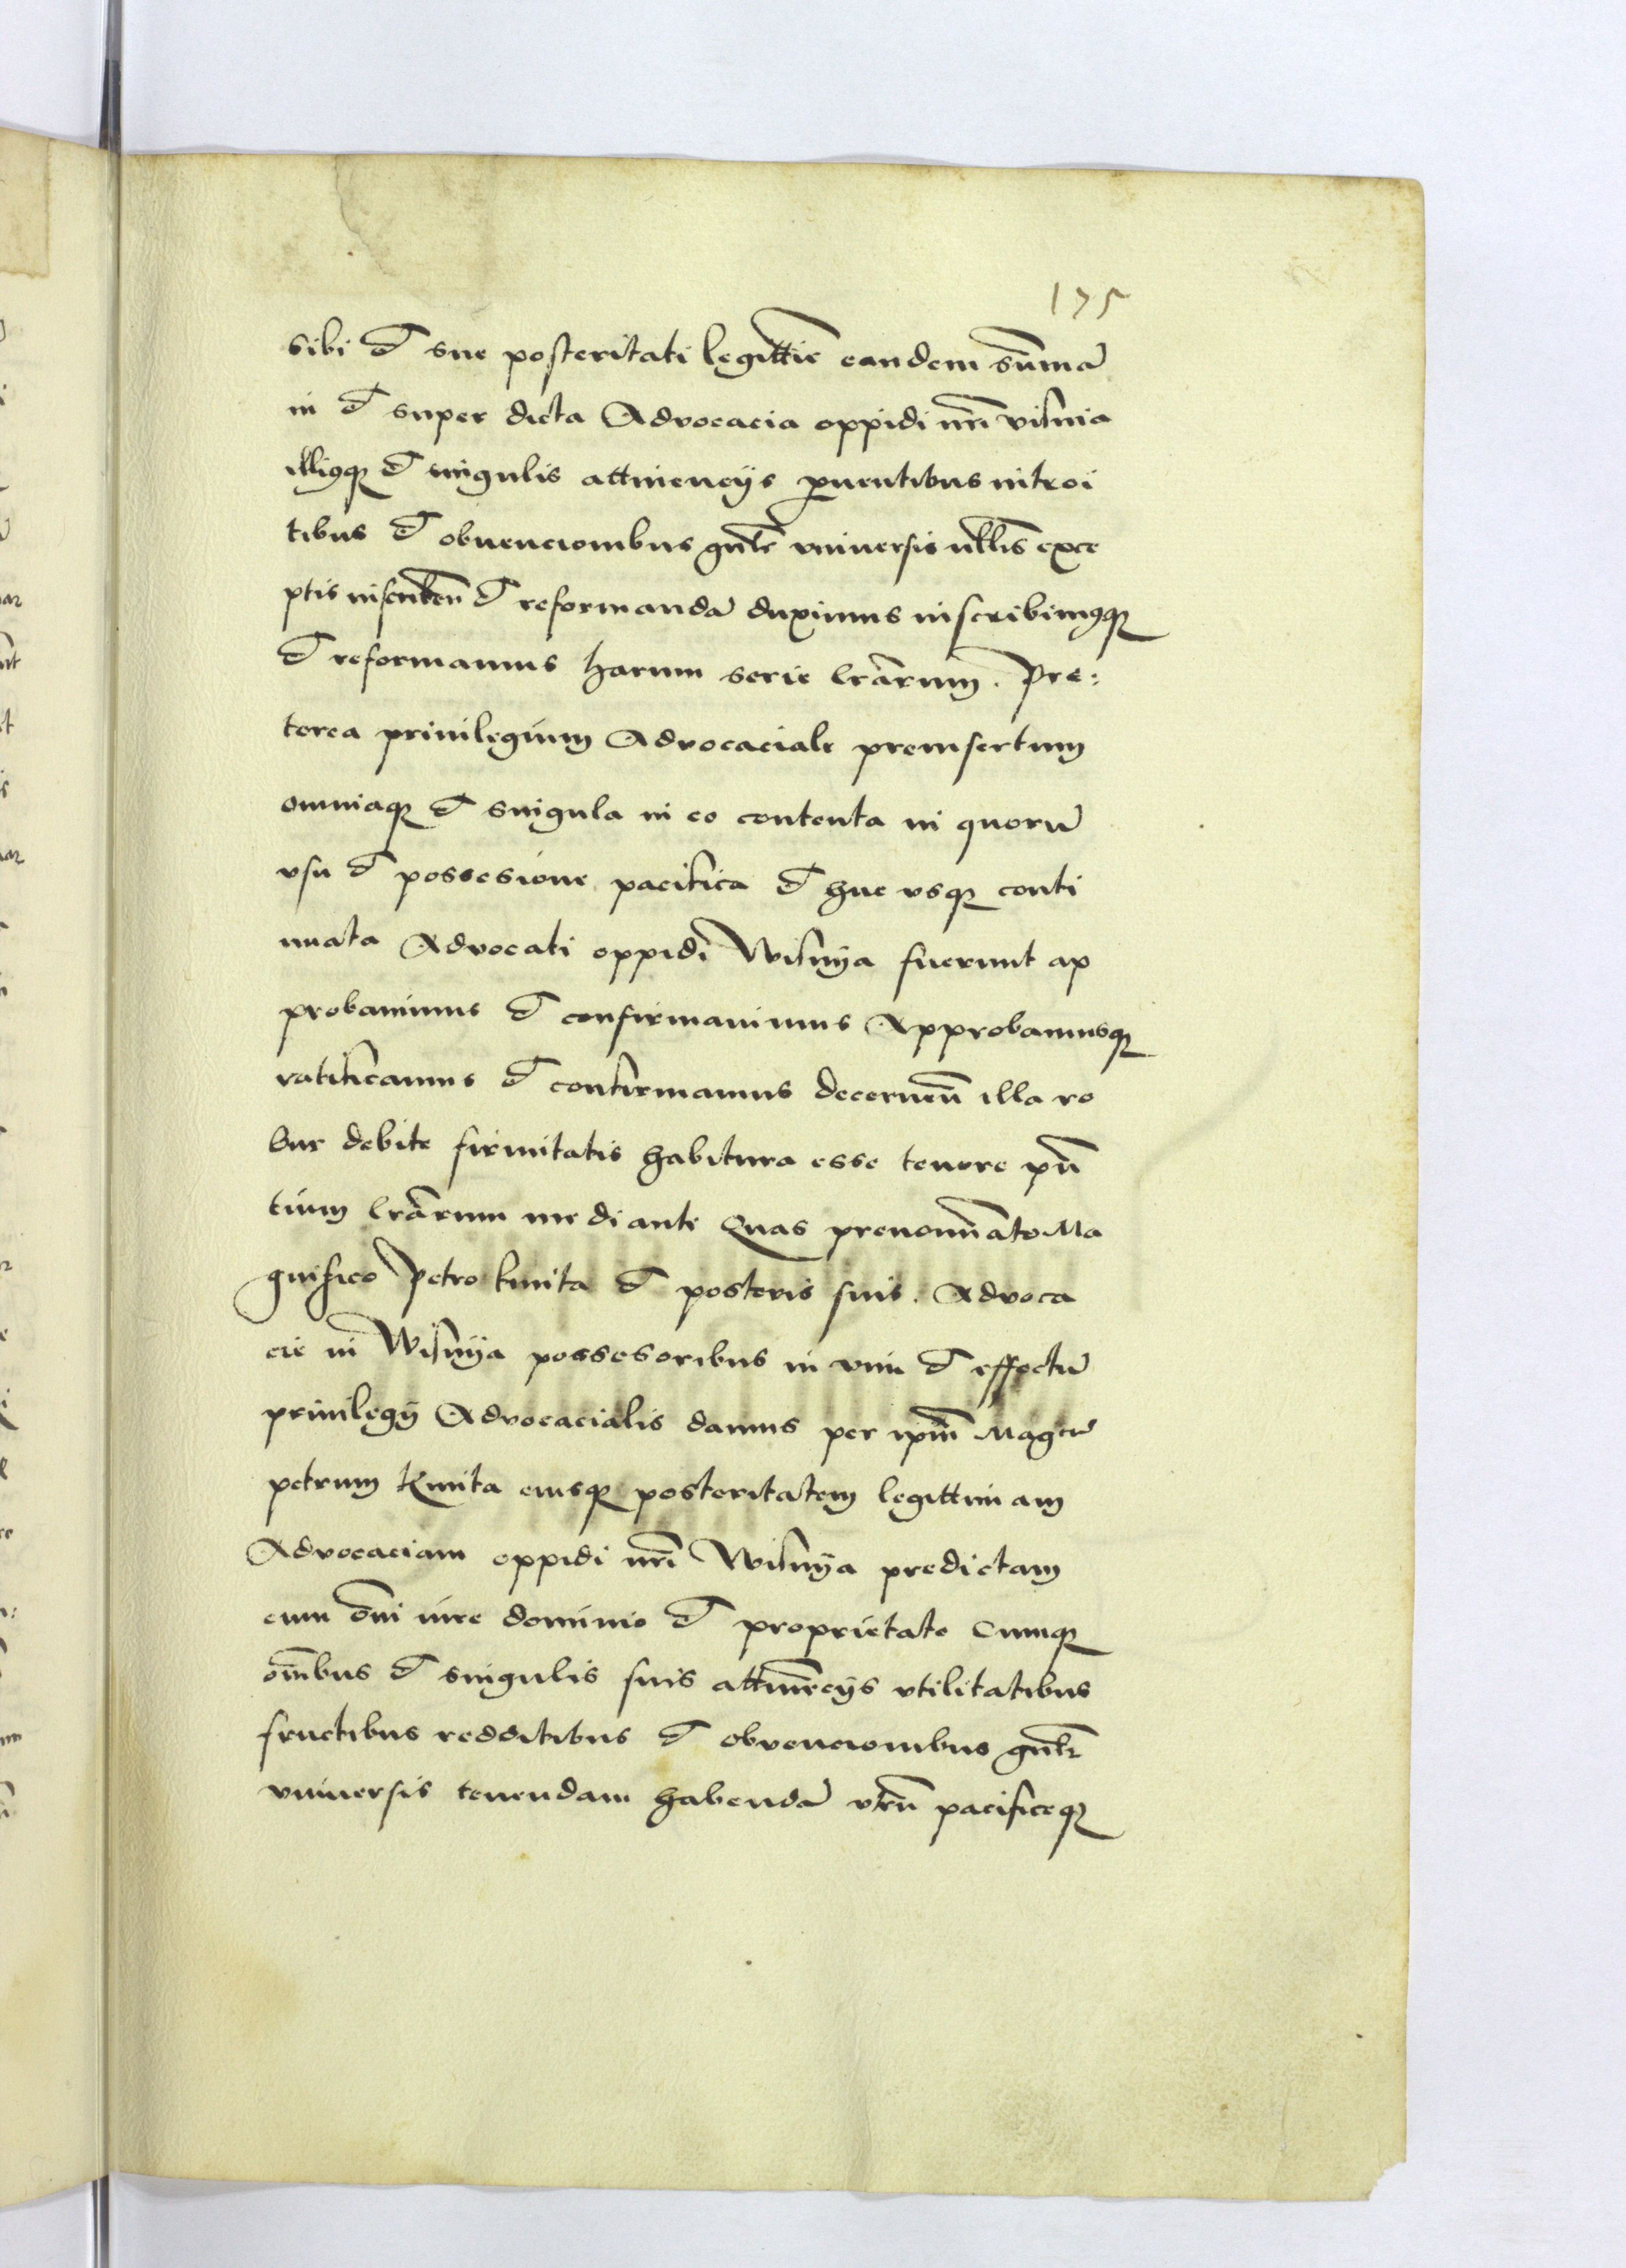 175
sibi et sue posteritati legittie eandem sūmā
in et super dicta Advocacia oppidi nr̄i visnia
illiqꝫ et singulis attinencijs ꝓuentibus introi
tibus et obuencionibus gn̄lr vniuersis nullis exce
ptis inscriben̄ et reformandā duximus inscribimqꝫ
et reformamus harum serie lr̄arum. Pre:
terea priuilegium Advocaciale preinsertum
omniaqꝫ et singula in eo contenta in quorū
vsu et possesione pacifica et huc vsqꝫ conti
nuata Advocati oppidi Wisnÿa fuerunt ap
probauimus et confirmauimus Approbamusqꝫ
ratificamus et confirmamus decernen̄ illa ro
bur debite firmitatis habitura esse tenore pn̄
tium lr̄arum mediante Quas prenomīato Ma
gnifico Petro kmita et posteris suis. Advoca
cie in Wisnÿa possesoribus in vim et effectū
priuilegÿ Advocacialis damus per ipm̄ Magcū
petrum Kmita eiusqꝫ posteritatem legittimam
Advocaciam oppidi nr̄i Wisnÿa predictam
cum om̄i iure dominio et proprietate Cumqꝫ
om̄ibus et singulis suis attinēcijs vtilitatibus
fructibus redditibus et obvencionibus gn̄lr
vniuersis tenendam habendā vten̄ pacificeqꝫ